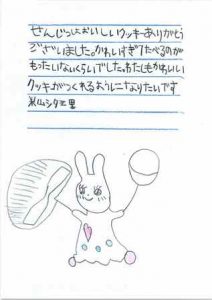 せんじつはおいしいクッキーありがとう
ございました。かわいすぎてたべるのが
もったいないくらいでした。わたしもかわいい
クッキーがつくれるようになりたいです